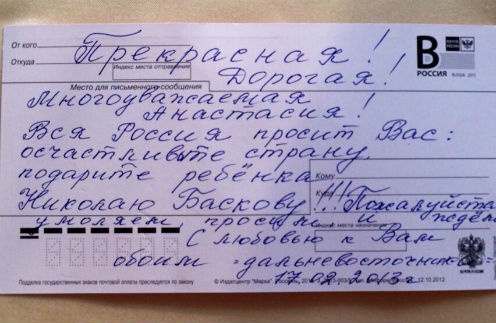 От кого
Прекрасная!
Откуда
Индекс места отправления
Дорогая!
В
РОССИЯ RUSSIA 2011
Место для письменного сообщения
Многоуважаемая
Анастасия!
Вся Россия просит Вас:
осчастливьте страну,
подарите ребёнка
Кому
Николаю Баскову!!! Пожалуйста
Куда
умоляем, просим и ждём
Индекс места назначения
С любовью к Вам
обоим - дальневосточники -
17.02.2013г
ПОЧТА РОССИИ
Подделка государственных знаков почтовой оплаты преследуется по закону
© Издатцентр "Марка", 12.10.2012